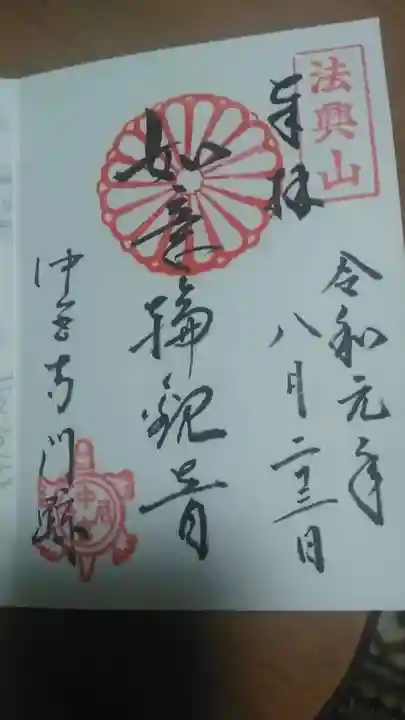 法興山
奉拝
令和元年
八月二十三日
如意輪観世音
中宮寺門跡
中宮